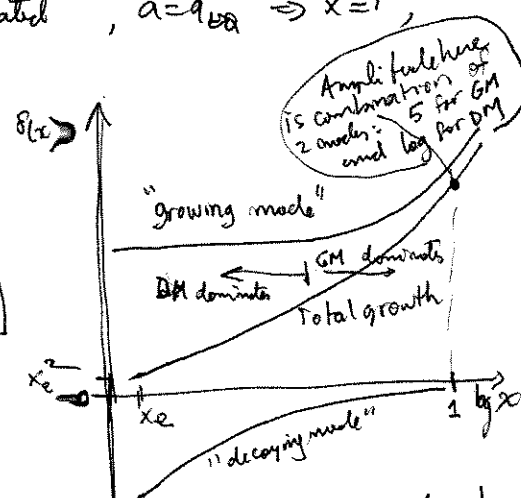 , a=a_EQ ⇒ x=1,
Amplitude here
is combination of
2 modes: 5 for GM
and log for DM
δ(x)
"growing mode"
GM dominates
DM dominates
Total growth
x_e^2
0
x_e
1 log x
"decaying mode"